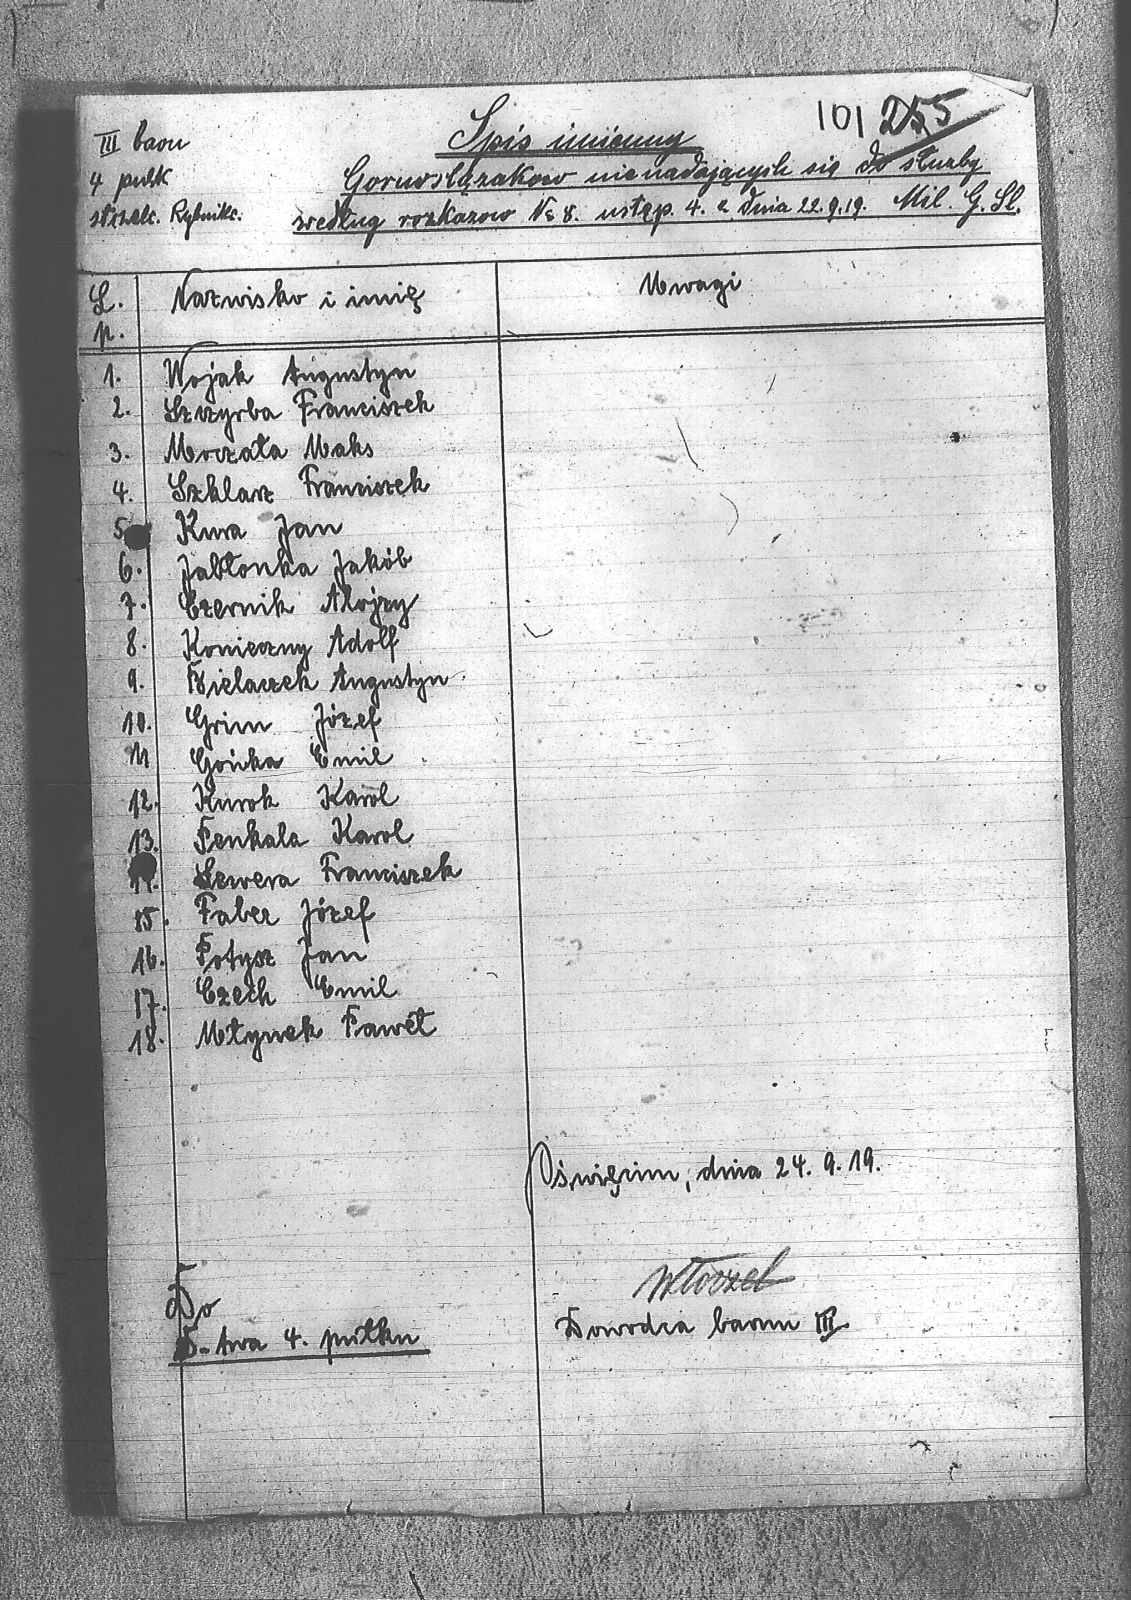 101 255
III baon
4 pułk
strzelc. Rybnikc.
Spis imienny
Gornoslązakow nienadających się do służby
według rozkazow № 8. ustęp. 4. z dnia 22.9.19. Mil. G. Sl.
L. p.
Nazwisko i imię
Uwagi
1. Wojak Augustyn
2. Szczyrba Franciszek
3. Moczała Maks
4. Szklarz Franciszek
5. Kura Jan
6. Jabłonka Jakób
7. Czernik Alojzy
8. Konieczny Adolf
9. Bielaczek Augustyn
10. Grim Józef
11 Gońka Emil
12. Kurok Karol
13. Penkala Karol
14. Szwera Franciszek
15. Faber Józef
16. Potysz Jan
17. Czech Emil
18. Młynek Paweł
Oświęcim, dnia 24. 9. 19.
Do
D-twa 4. pułku
Dowodca baonu III